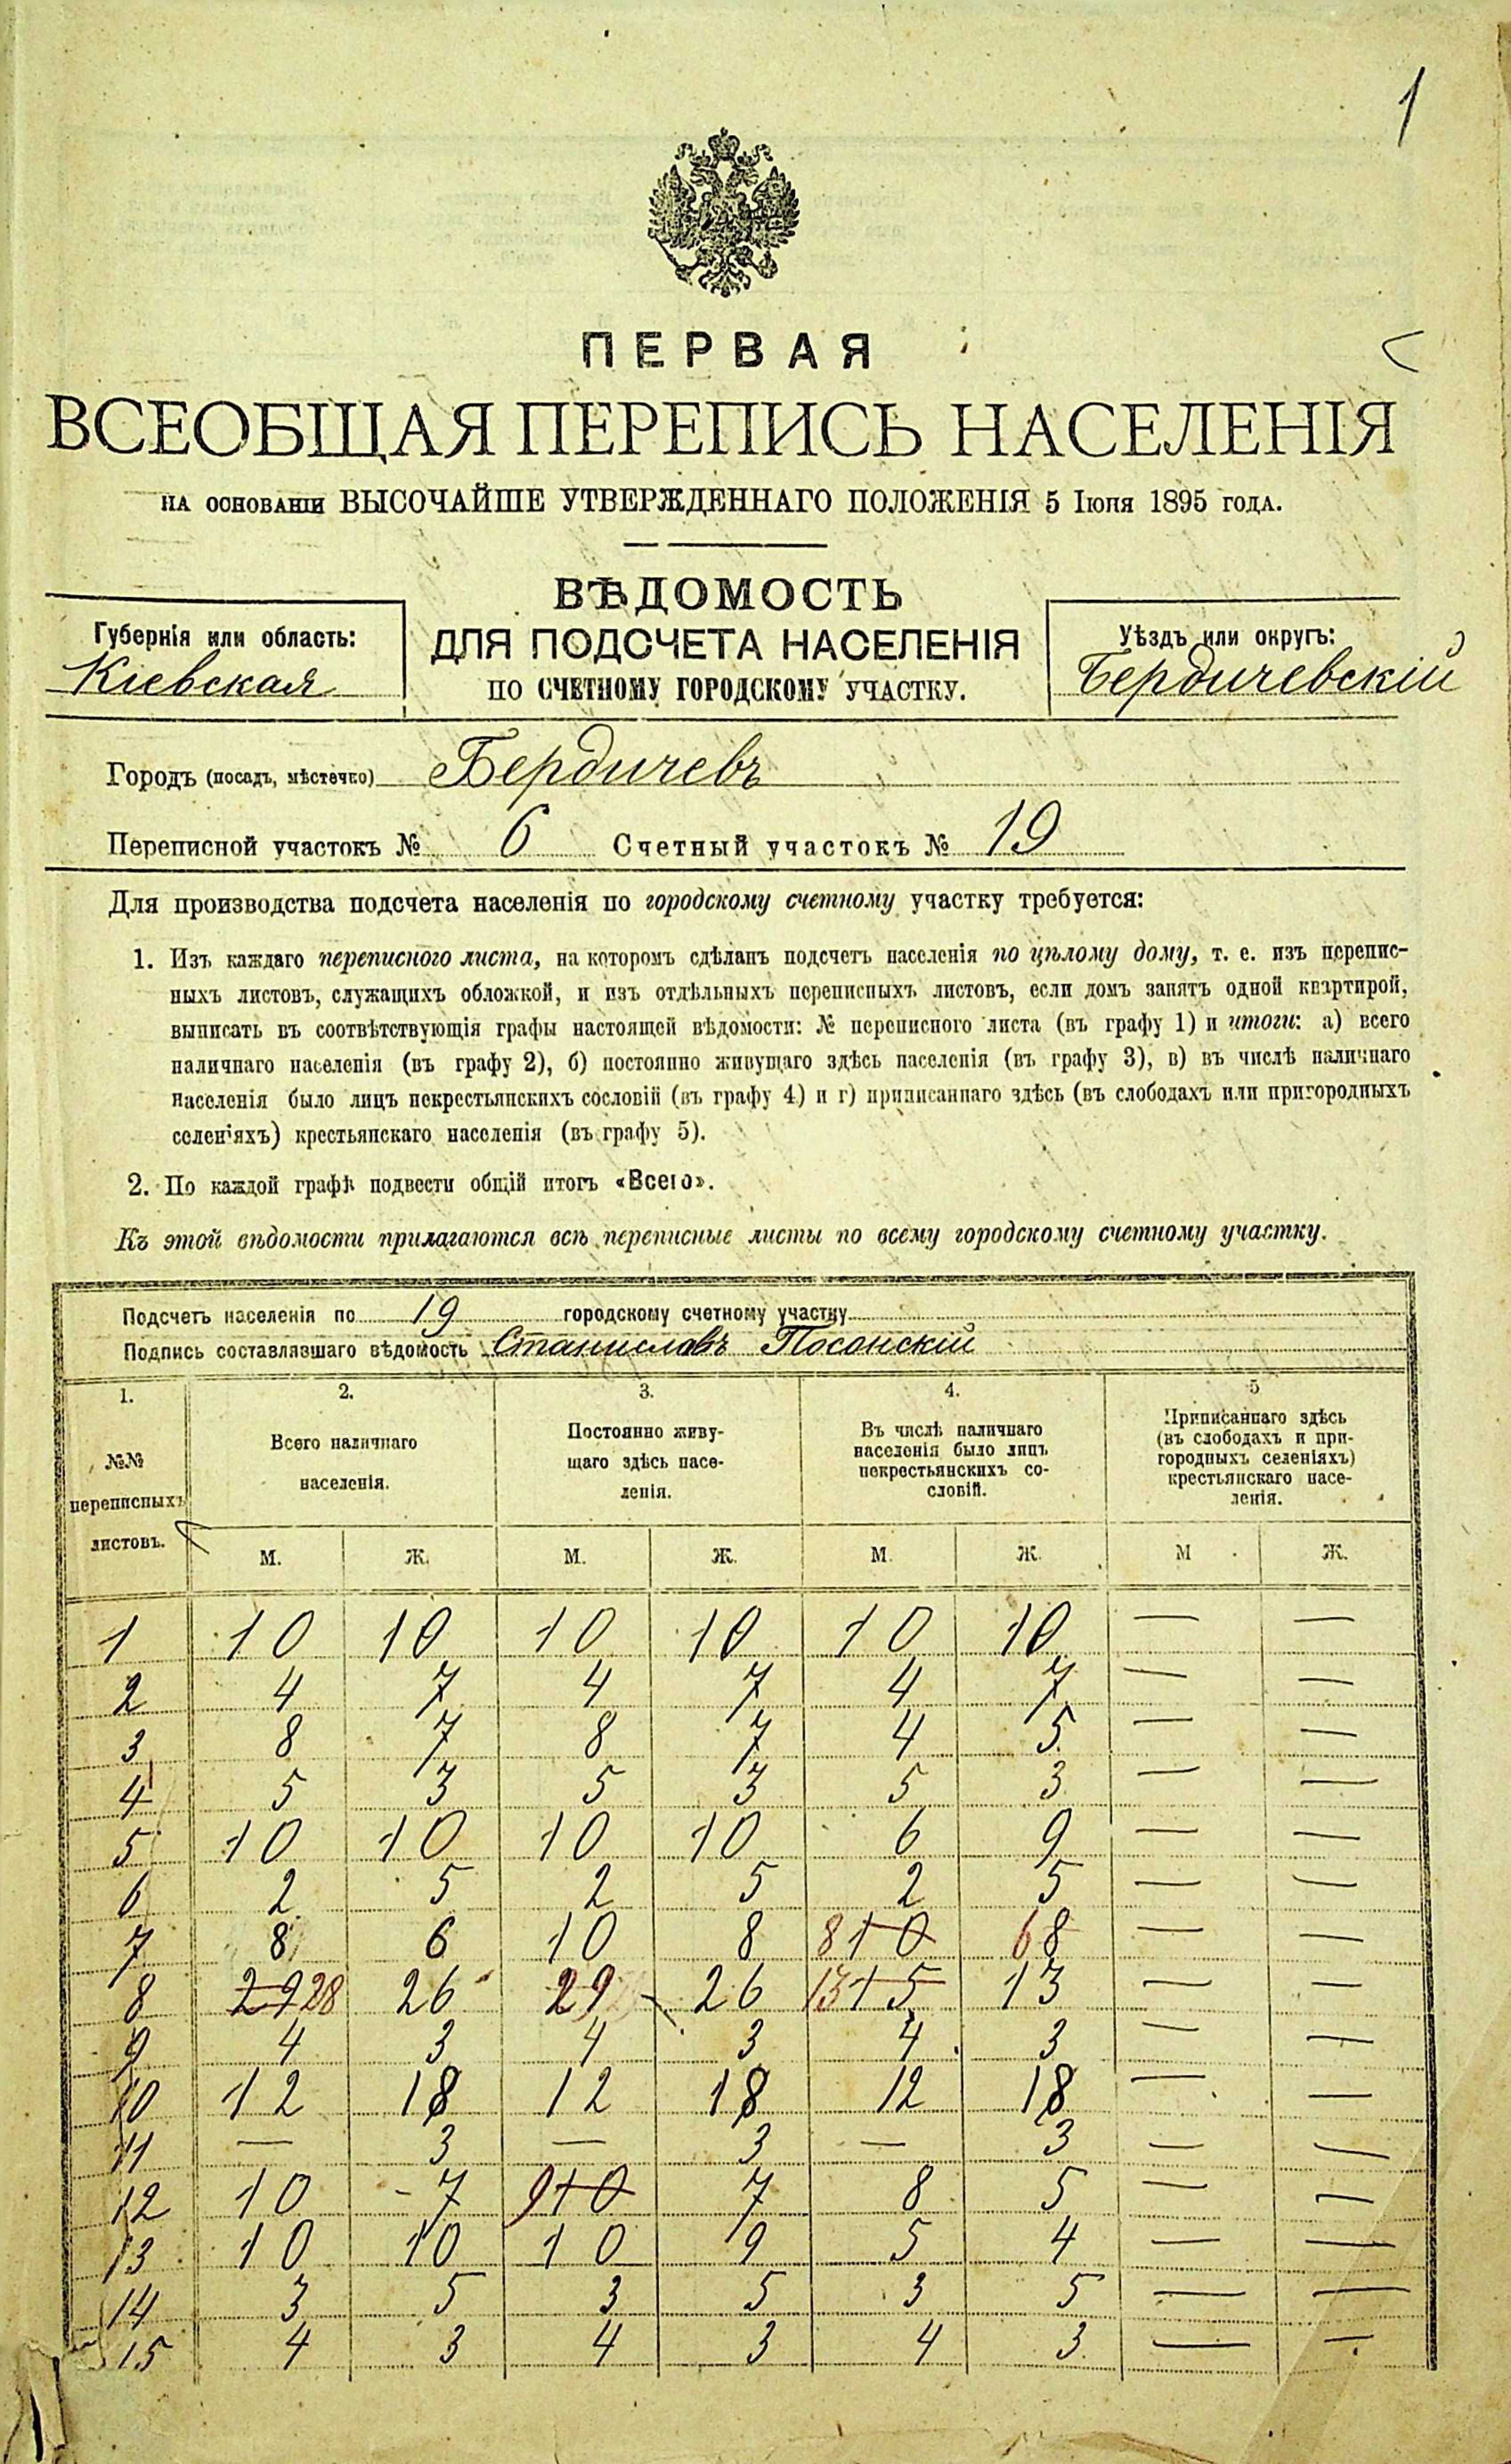 1
ПЕРВАЯ
ВСЕОБЩАЯ ПЕРЕПИСЬ НАСЕЛЕНІЯ
НА ОСНОВАНІИ ВЫСОЧАЙШЕ УТВЕРЖДЕННАГО ПОЛОЖЕНІЯ 5 Іюня 1895 года.
ВѢДОМОСТЬ
ДЛЯ ПОДСЧЕТА НАСЕЛЕНІЯ
ПО СЧЕТНОМУ ГОРОДСКОМУ УЧАСТКУ.
Губернія или область:
Кіевская
Уѣздъ или округъ:
Бердичевскій
Городъ (посадъ, мѣстечко) Бердичевъ
Переписной участокъ № 6 Счетный участокъ № 19
Для производства подсчета населенія по городскому счетному участку требуется:
1. Изъ каждаго переписного листа, на которомъ сдѣланъ подсчетъ населенія по цѣлому дому, т. е. изъ перепис-
ныхъ листовъ, служащихъ обложкой, и изъ отдѣльныхъ переписныхъ листовъ, если домъ занятъ одной квартирой,
выписать въ соотвѣтствующія графы настоящей вѣдомости: № переписного листа (въ графу 1) и итоги: а) всего
наличнаго населенія (въ графу 2), б) постоянно живущаго здѣсь населенія (въ графу 3), в) въ числѣ наличнаго
населенія было лицъ некрестьянскихъ сословій (въ графу 4) и г) приписаннаго здѣсь (въ слободахъ или пригородныхъ
селеніяхъ) крестьянскаго населенія (въ графу 5).
2. По каждой графѣ подвести общій итогъ «Всего».
Къ этой вѣдомости прилагаются всѣ переписные листы по всему городскому счетному участку.
Подсчетъ населенія по 19 городскому счетному участку
Подпись составлявшаго вѣдомость Станиславъ Посонскій
1. 2. 3. 4. 5
№№
переписныхъ
листовъ.
Всего наличнаго
населенія.
Постоянно живу-
щаго здѣсь насе-
ленія.
Въ числѣ наличнаго
населенія было лицъ
некрестьянскихъ со-
словій.
Приписаннаго здѣсь
(въ слободахъ и при-
городныхъ селеніяхъ)
крестьянскаго насе-
ленія.
М. Ж. М. Ж. М. Ж. М Ж.
1 10 10 10 10 10 10 — —
2 4 7 4 7 4 7 — —
3 8 7 8 7 4 5 — —
4 5 3 5 3 5 3 — —
5 10 10 10 10 6 9 — —
6 2 5 2 5 2 5 — —
7 8 6 10 8 8 10 6 8 — —
8 29 28 26 29 26 13 15 13 — —
9 4 3 4 3 4 3 — —
10 12 18 12 18 12 18 — —
11 — 3 — 3 — 3 — —
12 10 7 9 10 7 8 5 — —
13 10 10 10 9 5 4 — —
14 3 5 3 5 3 5 — —
15 4 3 4 3 4 3 — —